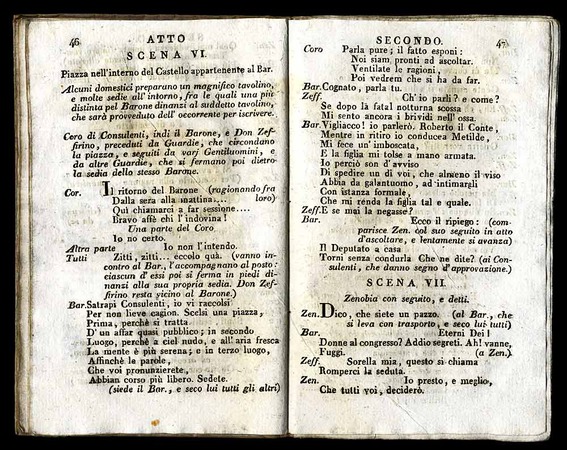 46
ATTO
SCENA VI.
Piazza nell'interno del Castello appartenente al Bar.
Alcuni domestici preparano un magnifico tavolino,
e molte sedie all'intorno, fra le quali una più
distinta pel Barone dinanzi al suddetto tavolino,
che sarà provveduto dell' occorrente per iscrivere.
Coro di Consulenti, indi il Barone, e Don Zef-
firino, preceduti da Guardie, che circondano
la piazza, e seguiti da varj Gentiluomini, e
da altre Guardie, che si fermano poi dietro
la sedia dello stesso Barone.
Cor. Il ritorno del Barone (ragionando fra
Dalla sera alla mattina.... loro)
Qui chiamarci a far sessione....
Bravo affè chi l' indovina!
Una parte del Coro
Io no certo.
Altra parte Io non l'intendo.
Tutti Zitti, zitti... eccolo quà. (vanno in-
contro al Bar., l'accompagnano al posto:
ciascun d' essi poi si ferma in piedi di-
nanzi alla sua propria sedia. Don Zef-
firino resta vicino al Barone.)
Bar. Satrapi Consulenti, io vi raccolsi
Per non lieve cagion. Scelsi una piazza,
Prima, perchè si tratta
D' un affar quasi pubblico; in secondo
Luogo, perchè a ciel nudo, e all' aria fresca
La mente è più serena; e in terzo luogo,
Affinchè le parole,
Che voi pronunzierete,
Abbian corso più libero. Sedete.
(siede il Bar., e seco lui tutti gli altri)
SECONDO.
47
Coro Parla pure; il fatto esponi:
Noi siam pronti ad ascoltar.
Ventilate le ragioni,
Poi vedrem che si ha da far.
Bar. Cognato, parla tu.
Zeff. Ch' io parli? e come?
Se dopo la fatal notturna scossa
Mi sento ancora i brividi nell' ossa.
Bar. Vigliacco! io parlerò. Roberto il Conte,
Mentre in ritiro io conducea Metilde,
Mi fece un' imboscata,
E la figlia mi tolse a mano armata.
Io perciò son d'avviso
Di spedire un di voi, che almeno il viso
Abbia da galantuomo, ad intimargli
Con istanza formale,
Che mi renda la figlia tal e quale.
Zeff. E se mai la negasse?
Bar. Ecco il ripiego: (com-
parisce Zen. col suo seguito in atto
d'ascoltare, e lentamente si avanza)
Il Deputato a casa
Torni senza condurla Che ne dite? (ai Con-
sulenti, che danno segno d'approvazione.)
SCENA VII.
Zenobia con seguito, e detti.
Zen. Dico, che siete un pazzo. (al Bar., che
si leva con trasporto, e seco lui tutti)
Bar. Eterni Dei!
Donne al congresso? Addio segreti. Ah! vanne,
Fuggi. (a Zen.)
Zeff. Sorella mia, questo si chiama
Romperci la seduta.
Zen. Io presto, e meglio,
Che tutti voi, deciderò.